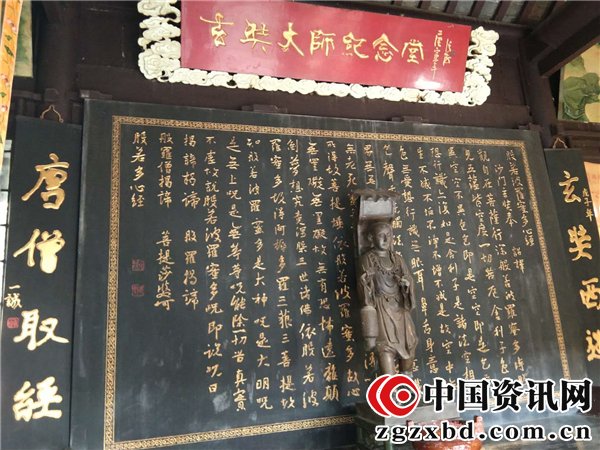 玄奘大師紀念堂
玄奘西
般若波羅蜜多心經
沙門玄奘奉 詔譯
觀自在菩薩行深般若波羅蜜多時
見五蘊皆空度一切苦厄舍利子色
不異空空不異色色即是空空即是色
想行識
舍利子是諸法空相
不生不滅不垢不淨不增不減是故空中
無色無受想行識無眼耳鼻舌身意
得故菩提薩埵依般若波羅蜜多故心
無罣礙無罣礙故無有恐怖遠離顛
倒夢想究竟涅槃三世諸佛依般若波
羅蜜多故得阿耨多羅三藐三菩提故
知般若波羅蜜多是大神咒是大明咒
是無上咒是無等等咒能除一切苦真實
不虛故說般若波羅蜜多咒即說咒曰
揭諦揭諦 般羅揭諦
般羅僧揭諦 菩提莎婆訶
般若多心經
唐僧取經
一誠
中国资讯网
zgzxbd.com.cn